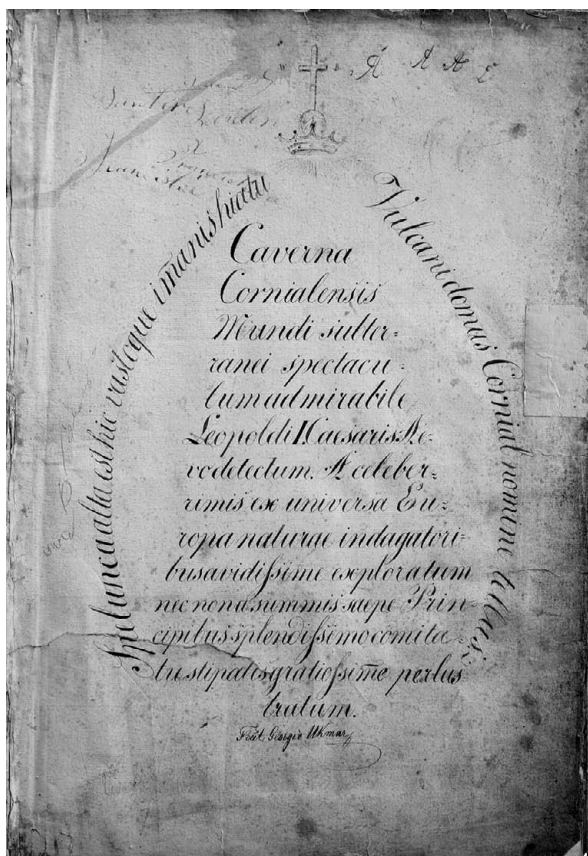 Spelunca alta est hic vastoque imanis hiatu
Vulcani domus Cornial nomine tellus
Caverna
Cornialensis
Mundi subter-
ranei spectacu-
lum admirabile
Leopoldi I Caesaris Ae-
vo detectum. A celeber-
rimis ex universa Eu-
ropa naturae indagatori-
bus avidissime exploratum
nec non a summis saepe Prin-
cipibus splendissimo comita-
tu stipatis gratiossime perlus
tratum.
Fecit Georgio Ukmar